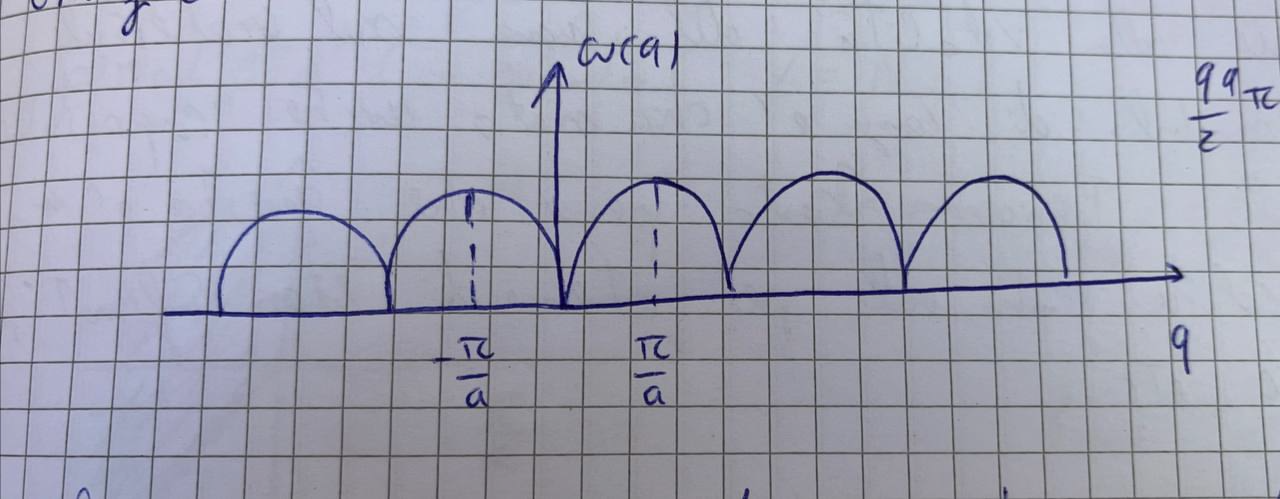 ω(q)
qa/2 π
-π/a
π/a
q